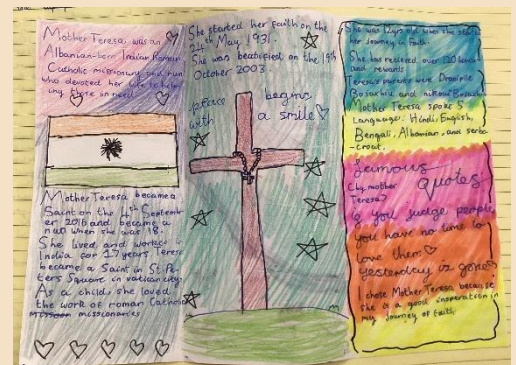 Mother Teresa was an
Albanian-born Indian Roman
Catholic missionary and nun
who devoted her life to help-
ing those in need
Mother Teresa became a
Saint on the 4th Septemb-
er 2016 and became a
nun when she was 18.
She lived and worked in
India for 17 years Teresa
became a Saint in St. Pe-
ters Square in vatican city
As a child, she loved
the work of roman Catholic
missionaries
She started her faith on the
24th May 1931.
She was beatified on the 19th
October 2003
peace begins
with a smile
She was 12 yrs old when she started
her Journey in Faith.
She has recieved over 120 honours
and rewards
Teresa's parents were Dranafile
Bojaxhiu and nikolle Bojaxhiu
Mother Teresa spoke 5
Language: Hindi, English,
Bengali, Albanian, and serbo
-croat.
famous
quotes
(by mother
Teresa)
if you judge people,
you have no time to
love them
yesterday is gone
I chose Mother Teresa because
she is a good insperation in
my Journey of faith